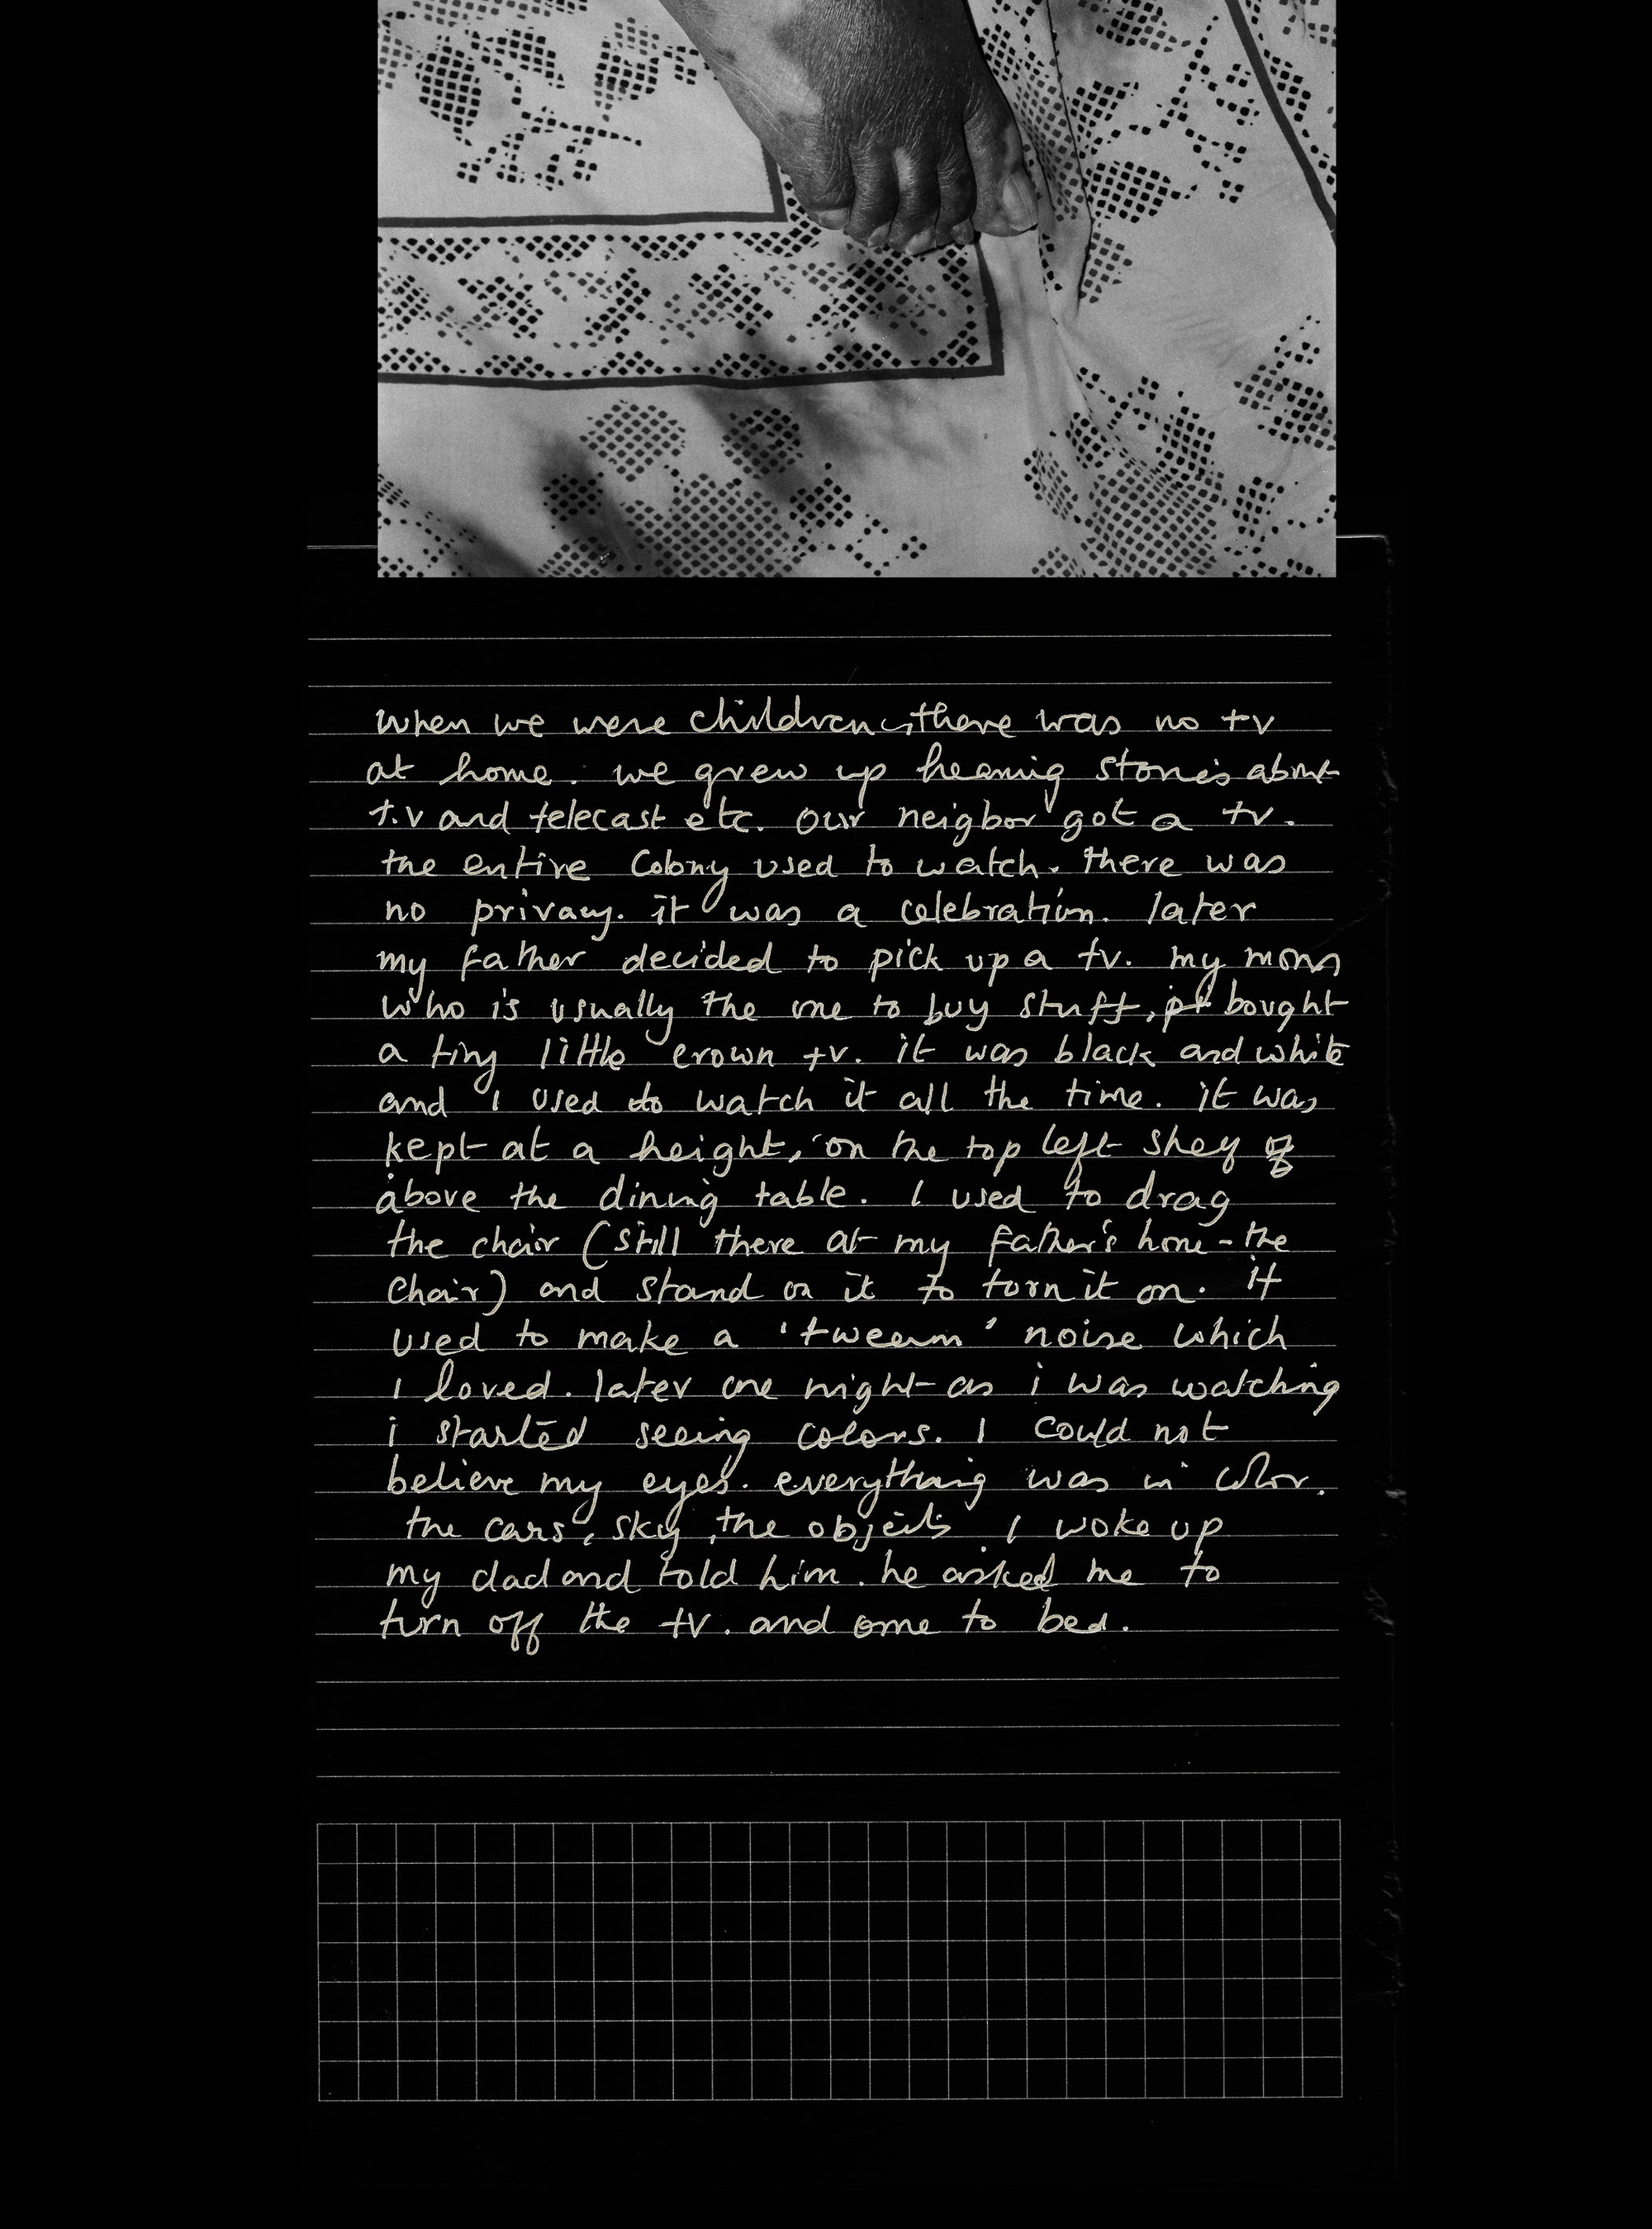 when we were children, there was no tv
at home. we grew up hearing stories about
t.v and telecast etc. our neigbor got a tv.
the entire Colony used to watch. there was
no privacy. it was a celebration. later
my father decided to pick up a tv. my mom
who is usually the one to buy stuff, bought
a tiny little crown tv. it was black and white
and I used to watch it all the time. it was
kept at a height, on the top left shelf
above the dining table. I used to drag
the chair (still there at my father's home - the
chair) and stand on it to turn it on. it
used to make a 'tweem' noise which
I loved. later one night as i was watching
i started seeing colors. I could not
believe my eyes. everything was in color.
the cars, sky, the objects. I woke up
my dad and told him. he asked me to
turn off the tv. and come to bed.